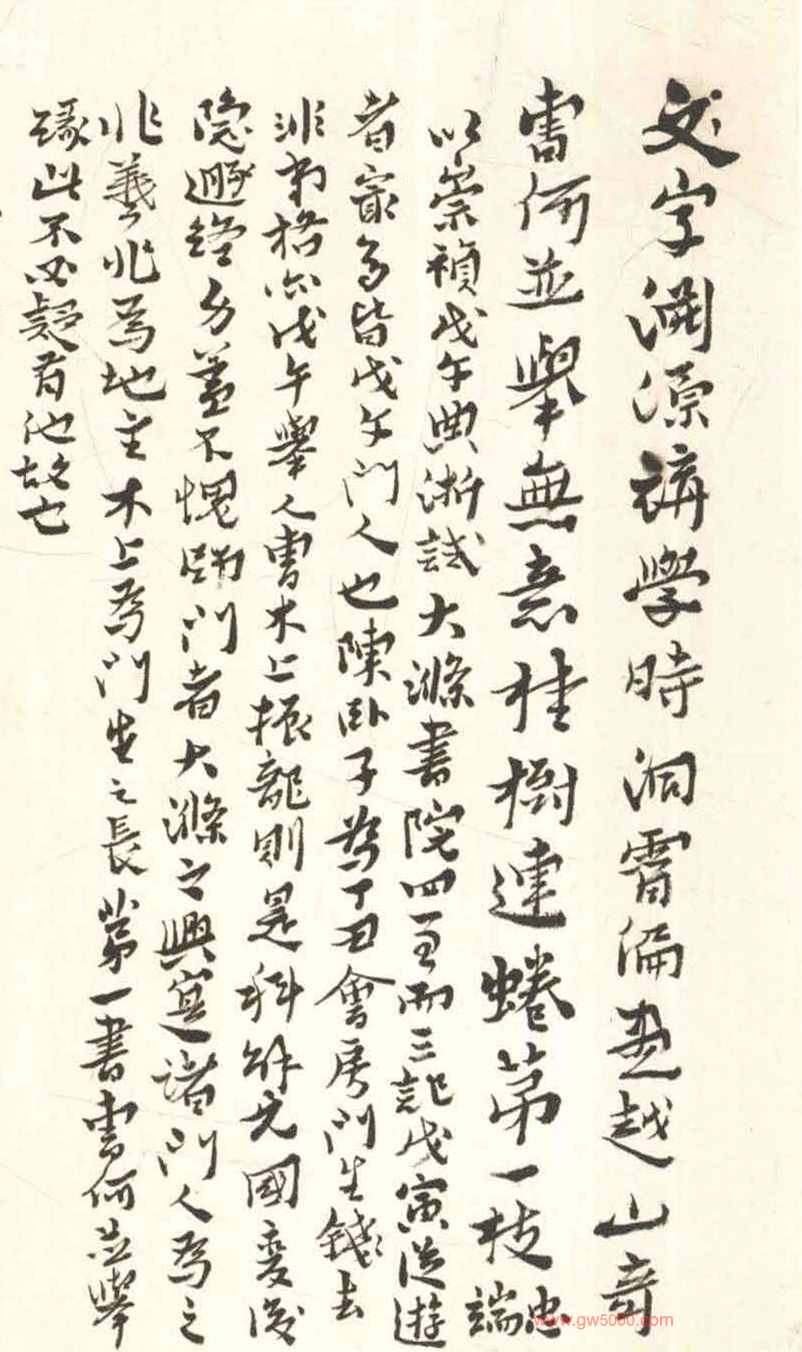 文字淵源講學時洞霄偏畫越山奇
曹何並舉無意桂樹連蜷第一枝忠端
以崇禎戊午典浙試大滌書院四至而三記戊寅從遊
者最多皆戊午門人也陳卧子為丁丑會房門生錢去
非朗格亦戊午舉人曹木上振龍則是科解元國變後
隱遯終身蓋不愧師門者大滌之興寔諸門人為之
非羲兆為地主木上為門生之長第一書曹何並舉
緣此不必疑有他故也
www.gw5000.com